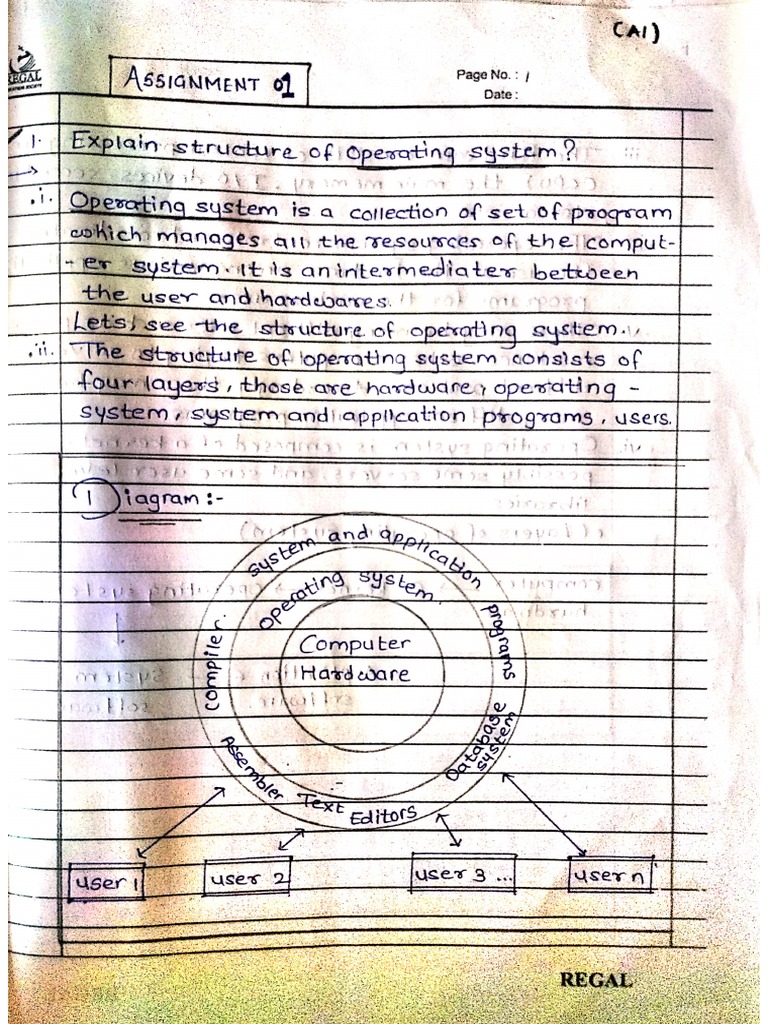 (A1)
REGAL
ASSIGNMENT 01
Page No. : 1
Date :
1. Explain structure of operating system?
→
.i. Operating system is a collection of set of program
which manages all the resources of the comput-
-er system. It is an intermediater between
the user and hardwares.
Let's, see the structure of operating system.
.ii. The structure of operating system consists of
four layers, those are hardware, operating -
system, system and application programs, users.
Diagram :-
system and application programs
Operating system
Computer
Hardware
Compiler
Assembler
Text Editors
Database system
user 1
user 2
user 3 ...
user n
REGAL